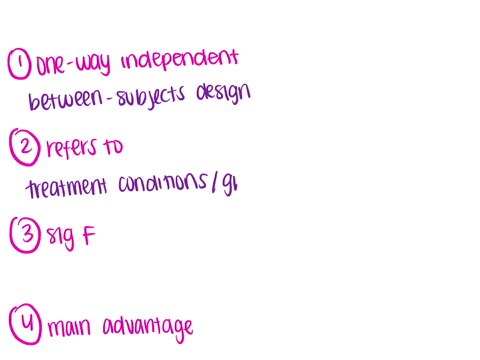 ① one-way independent
between-subjects design
② refers to
treatment conditions/gr
③ sig F
④ main advantage